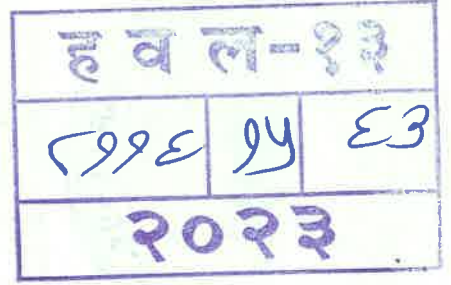 हवल-१३
८११६ १५ ६३
२०२३